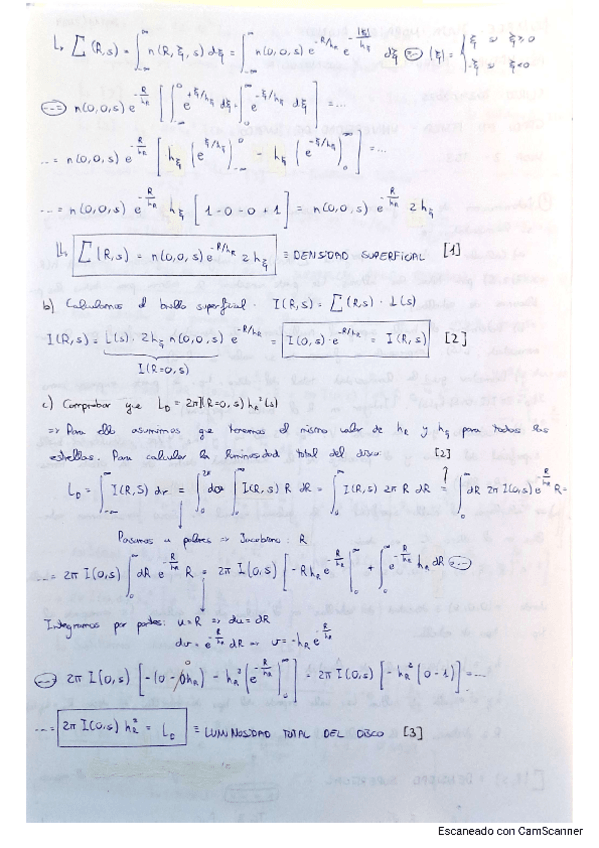 ↳ Σ(R,s) = ∫_{-∞}^{∞} n(R,ξ,s) dξ = ∫_{-∞}^{∞} n(0,0,s) e^{-R/h_R} e^{-|ξ|/h_ξ} dξ ⇔ |ξ| = { ξ si ξ≥0
-ξ si ξ<0
n(0,0,s) e^{-R/h_R} [ ∫_{-∞}^{0} e^{+ξ/h_ξ} dξ + ∫_{0}^{∞} e^{-ξ/h_ξ} dξ ] = ...
... = n(0,0,s) e^{-R/h_R} [ h_ξ (e^{ξ/h_ξ})_{-∞}^{0} - h_ξ (e^{-ξ/h_ξ})_{0}^{∞} ] = ...
... = n(0,0,s) e^{-R/h_R} h_ξ [ 1 - 0 - 0 + 1 ] = n(0,0,s) e^{-R/h_R} 2 h_ξ
Σ(R,s) = n(0,0,s) e^{-R/h_R} 2 h_ξ ≡ DENSIDAD SUPERFICIAL [1]
b) Calculamos el brillo superficial. I(R,s) = Σ(R,s) · L(s)
I(R,s) = L(s) · 2h_ξ n(0,0,s) e^{-R/h_R} = I(0,s) · e^{-R/h_R} = I(R,s) [2]
I(R=0,s)
c) Comprobar que L_D = 2π I(R=0,s) h_R²(s)
⇒ Para ello asumimos que tenemos el mismo valor de h_R y h_ξ para todas las
estrellas. Para calcular la luminosidad total del disco: [2]
L_D = ∫_{-∞}^{∞} I(R,s) dr = ∫_{0}^{2π} dα ∫_{0}^{∞} I(R,s) R dR = ∫_{0}^{∞} I(R,s) 2π R dR = ∫_{0}^{∞} dR 2π I(0,s) e^{-R/h_R} R =
Pasamos a polares ⇒ Jacobiano: R
... = 2π I(0,s) ∫_{0}^{∞} dR e^{-R/h_R} R = 2π I(0,s) [ -R h_R e^{-R/h_R} |_{0}^{∞} + ∫_{0}^{∞} e^{-R/h_R} h_R dR
Integramos por partes: u = R ⇒ du = dR
dv = e^{-R/h_R} dR ⇒ v = -h_R e^{-R/h_R}
2π I(0,s) [ -(0 - 0h_R) - h_R² (e^{-R/h_R})_{0}^{∞} ] = 2π I(0,s) [ -h_R² (0-1) ] = ...
... = 2π I(0,s) h_R² = L_D ≡ LUMINOSIDAD TOTAL DEL DISCO [3]
Escaneado con CamScanner